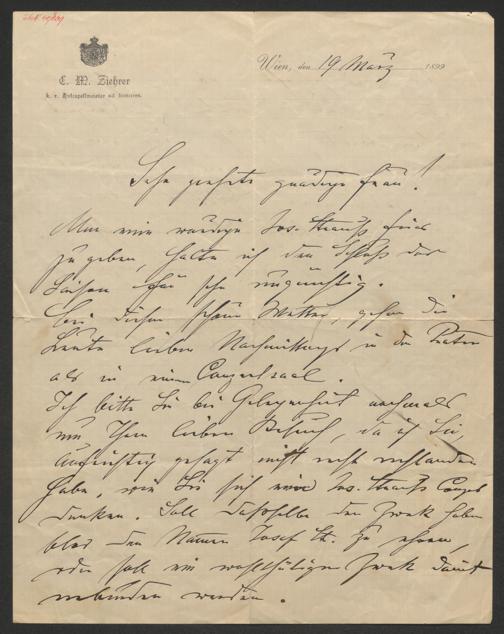 C. M. Ziehrer
k. u. k. Hofcapellmeister
Wien, den 19 März 1899
Sehr geehrte gnädige Frau!
Um eine würdige Jos. Strauß Feier
zu geben, halte ich den Schluß der
Saison für sehr ungünstig.
Bei diesem schönen Wetter, gehen die
Leute lieber Nachmittags in den Prater
als in einen Conzertsaal.
Ich bitte Sie bei Gelegenheit nochmals
um Ihren lieben Besuch, da ich Sie,
aufrichtig gesagt nicht recht verstanden
habe, wie Sie sich eine Jos. Strauß
denken. Soll dasselbe den Zweck haben
blos den Namen Josef St. zu ehren,
oder soll ein wohlthätiger Zweck damit
verbunden werden.